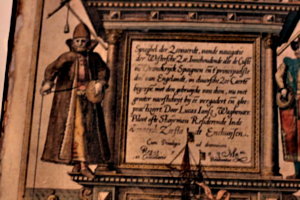 Spieghel der Zeevaerdt, vande navigatie
der Westersche Zee, Innehoudende alle de Custen
van Vranckrijck Spaignen en t' principaelste
deel van Engelandt, in diversche Zee Caerten
begrepen met den gebruijcke van dien, nu met
grooter naersticheijt bij een vergadert en ghe
practizeert Door Lucas Jansz Waghenaer
Piloot ofte Stuijrman Residerende Inde
Zeestadt Enchuijsen.
Cum Privilegio ad decennium